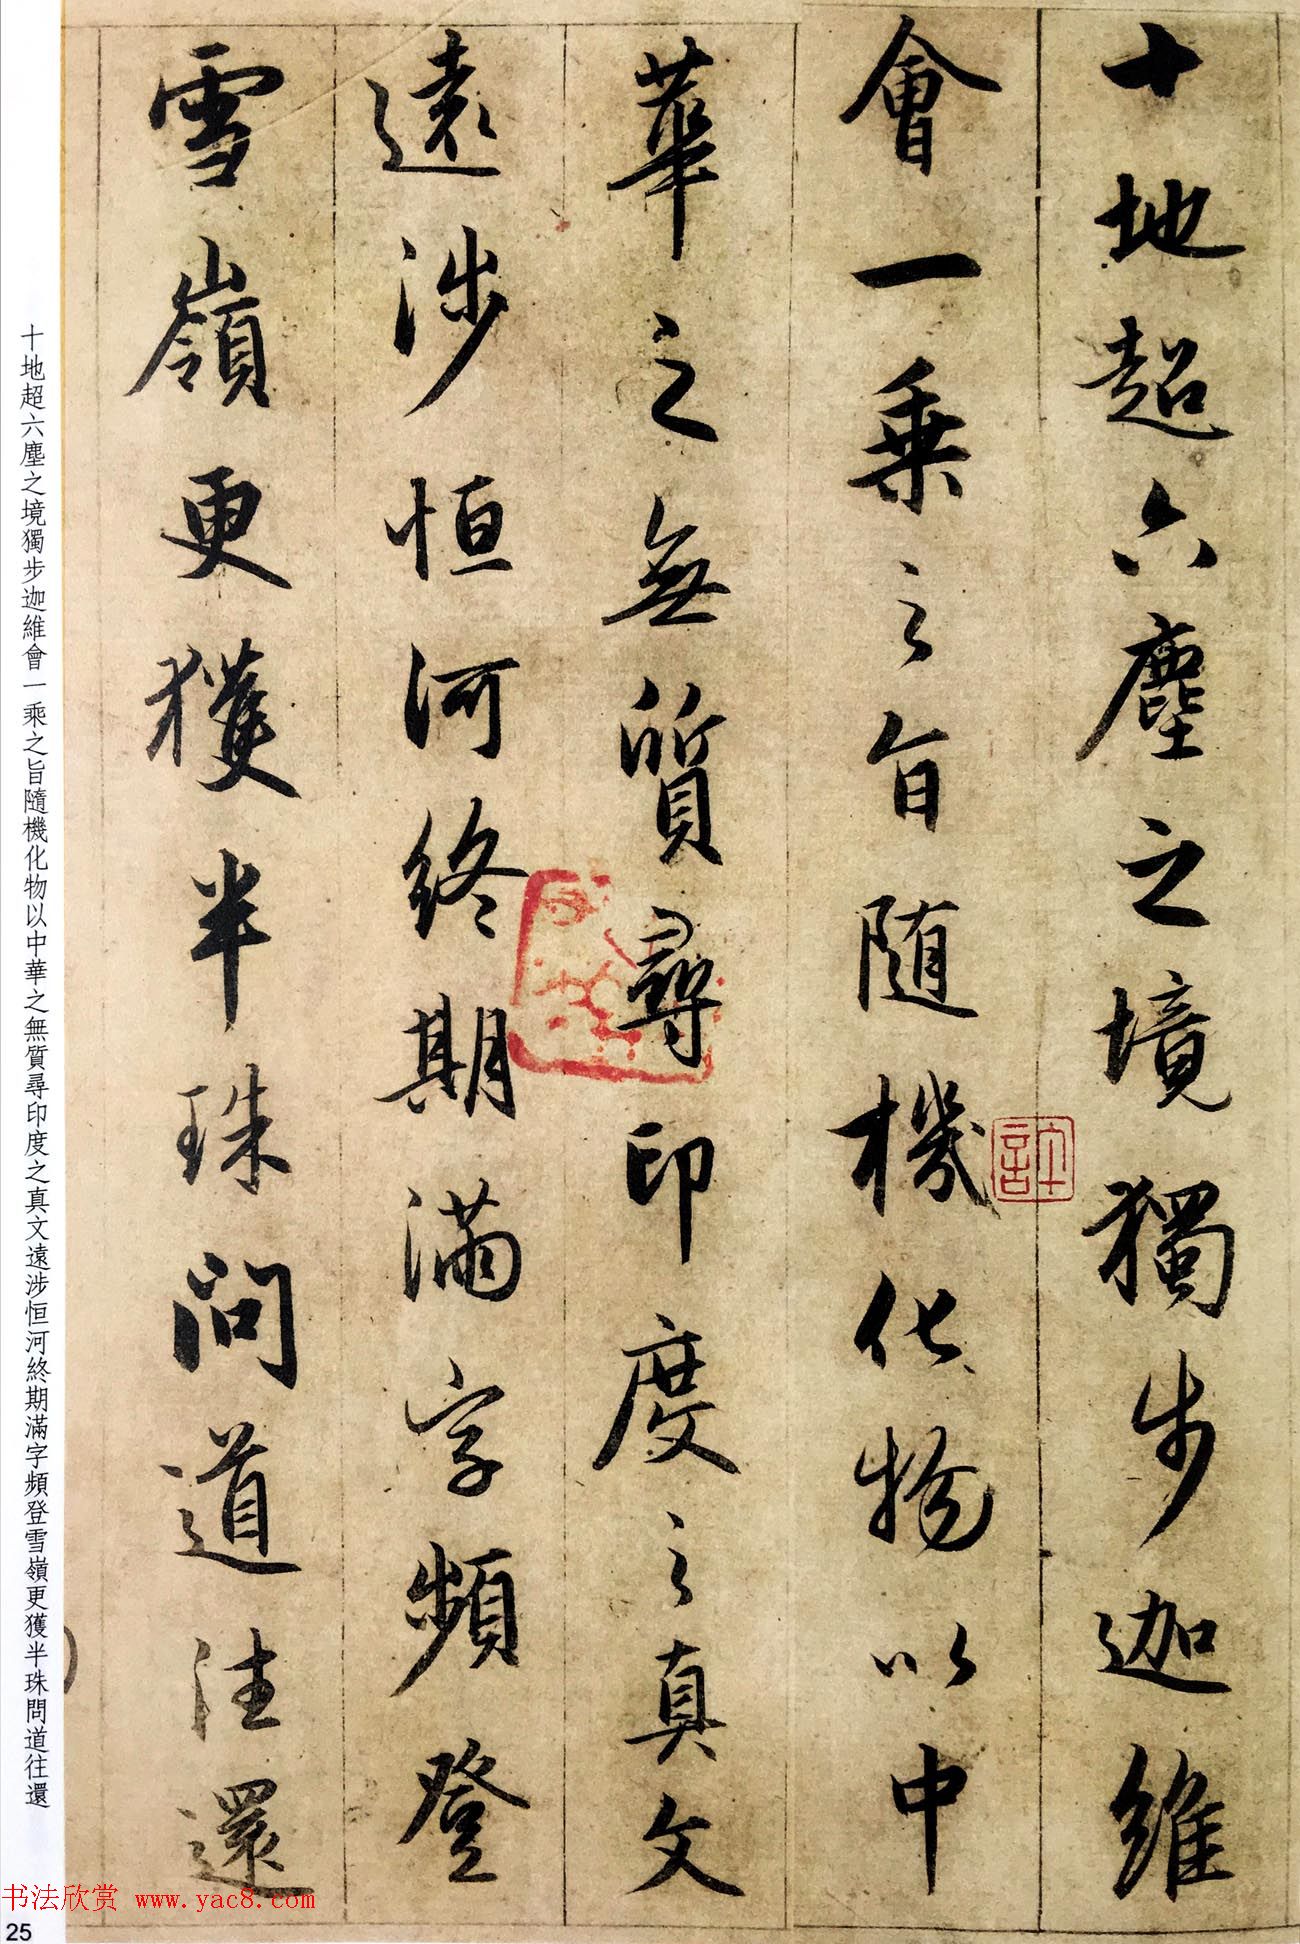 十地超六塵之境獨步迦維
會一乘之旨隨機化物以中
華之無質尋印度之真文
遠涉恒河終期滿字頻登
雪嶺更獲半珠問道往還
十地超六塵之境獨步迦維會一乘之旨隨機化物以中華之無質尋印度之真文遠涉恒河終期滿字頻登雪嶺更獲半珠問道往還
书法欣赏 www.yac8.com
25